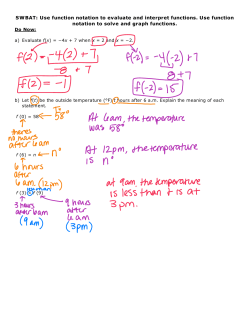 SWBAT: Use function notation to evaluate and interpret functions. Use function
notation to solve and graph functions.
Do Now:
a) Evaluate f(x) = −4x + 7 when x = 2 and x = −2.
f(2) = -4(2) + 7
-8 + 7
f(2) = -1
f(-2) = -4(-2) + 7
8+7
f(-2) = 15
b) Let f(t) be the outside temperature (°F) t hours after 6 a.m. Explain the meaning of each
statement.
f (0) = 58
58°
there's
no hours
after 6am
At 6am, the temperature
was 58°
f (6) = n
n°
6 hours
after
6 am. (12pm)
At 12pm, the temperature
is n°
less than
f (3) < f (9)
3 hours
after 6am
(9am)
9 hours
after
6am
(3pm)
at 9am, the temperature
is less than it is at
3pm.